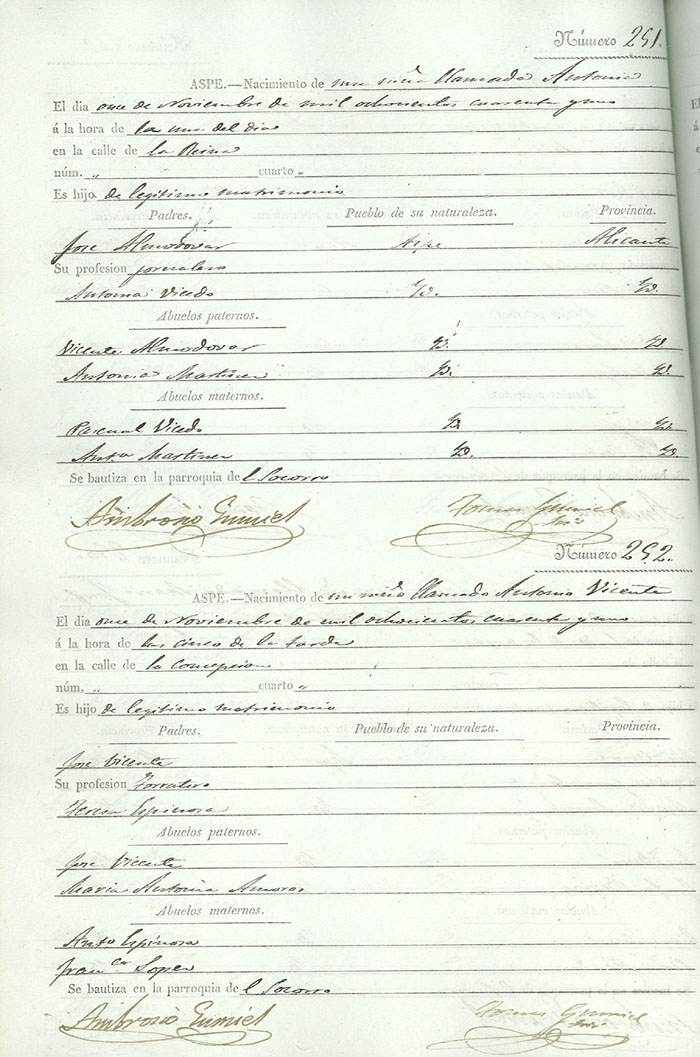 Número 251.
ASPE.—Nacimiento de una niña llamada Antonia
El dia once de Noviembre de mil ochocientos cuarenta y uno
á la hora de la una del dia
en la calle de la Reina
núm. „ cuarto „
Es hijo de legitimo matrimonio
Padres. Pueblo de su naturaleza. Provincia.
Jose Almodovar Aspe Alicante
Su profesion jornalero
Antonia Vicedo Yd. Yd.
Abuelos paternos.
Vicente Almodovar Yd. Yd.
Antonia Martinez Yd. Yd.
Abuelos maternos.
Pascual Vicedo Yd. Yd.
Anta Martinez Yd. Yd.
Se bautiza en la parroquia del Socorro
Ambrosio Gumiel Gumiel
Número 252.
ASPE.—Nacimiento de un niño llamado Antonio Vicente
El dia once de Noviembre de mil ochocientos cuarenta y uno
á la hora de las cinco de la tarde
en la calle de la Concepcion
núm. „ cuarto „
Es hijo de legitimo matrimonio
Padres. Pueblo de su naturaleza. Provincia.
Jose Vicente
Su profesion
Teresa Espinosa
Abuelos paternos.
Jose Vicente
Maria Antonia Amoros
Abuelos maternos.
Anto Espinosa
Franca Lopez
Se bautiza en la parroquia del Socorro
Ambrosio Gumiel Gumiel